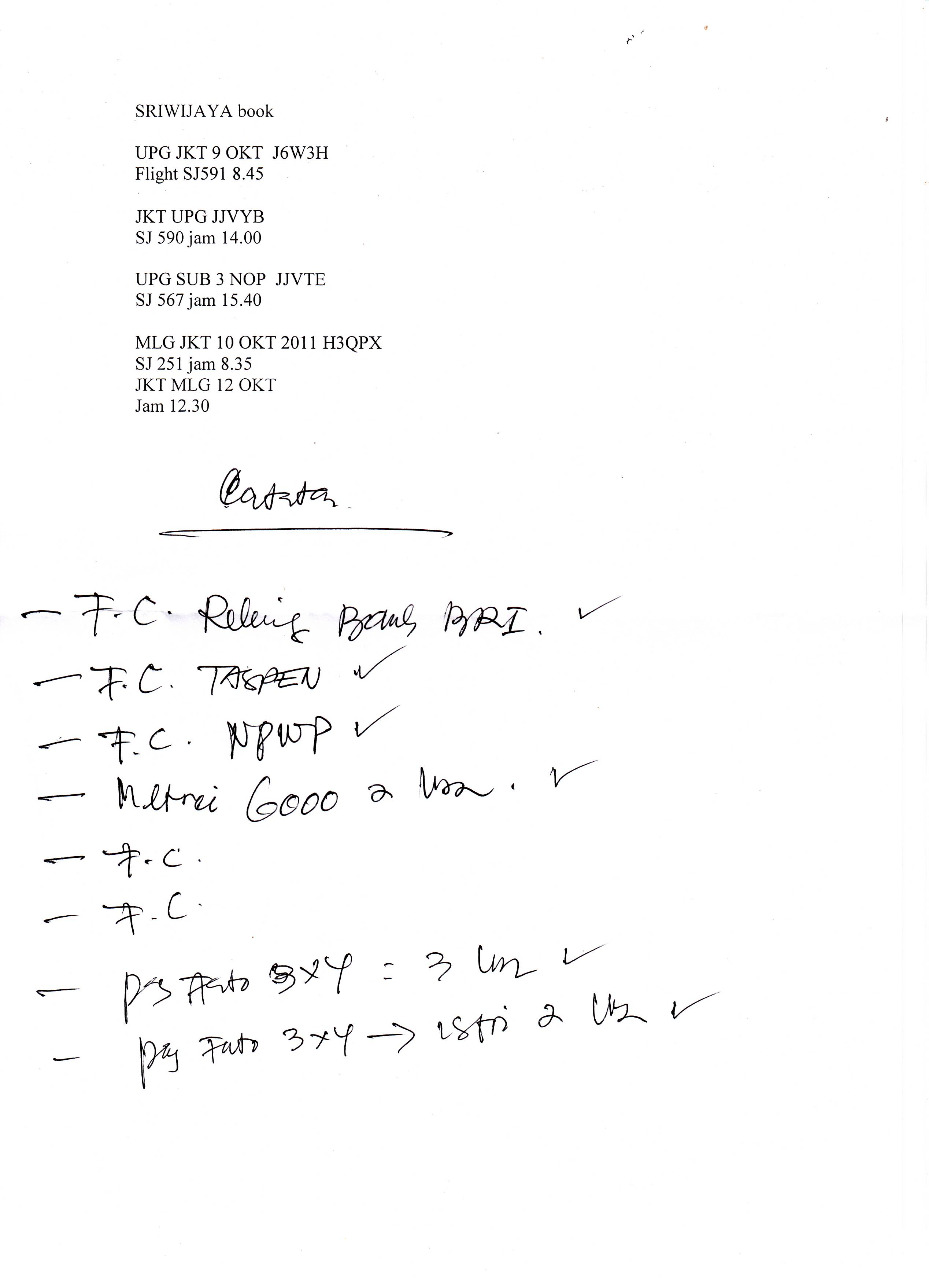 SRIWIJAYA book
UPG JKT 9 OKT J6W3H
Flight SJ591 8.45
JKT UPG JJVYB
SJ 590 jam 14.00
UPG SUB 3 NOP JJVTE
SJ 567 jam 15.40
MLG JKT 10 OKT 2011 H3QPX
SJ 251 jam 8.35
JKT MLG 12 OKT
Jam 12.30
Catatan
- F.C. Rekening Bank BRI. ✓
- F.C. TASPEN ✓
- F.C. NPWP ✓
- Metrai 6000 2 . ✓
- F.C.
- F.C.
- Foto 3x4 = 3 ✓
- Foto 3x4 → istri 2 ✓